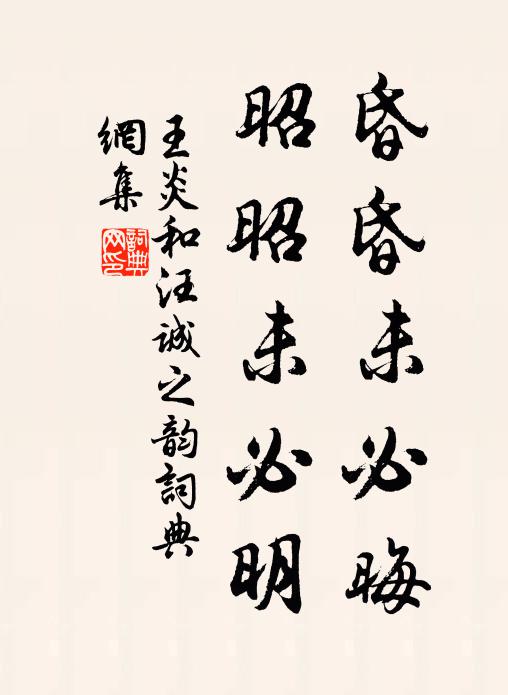 昏昏未必晦
昭昭未必明
王炎和汪誠之韵詞典
網集
詞典網印